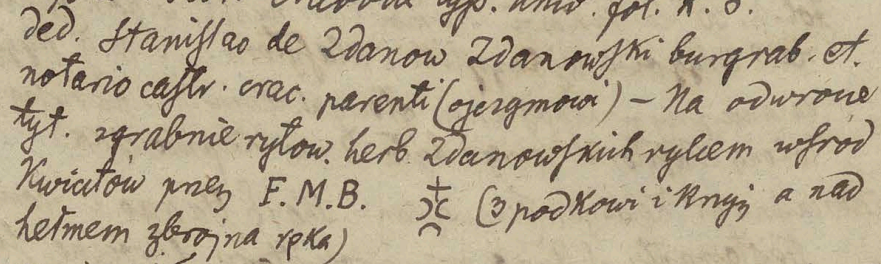 typ. univ. fol. K. 3.
ded. Stanislao de Zdanow Zdanowski burgrab. et.
notario castr. crac. parenti (ojczymowi) – Na odwrocie
tyt. zgrabnie rytow. herb Zdanowskich rylcem wśród
Kwiatów przez F. M. B. (3 podkowi i Krzyż a nad
hełmem zbrojna ręka)